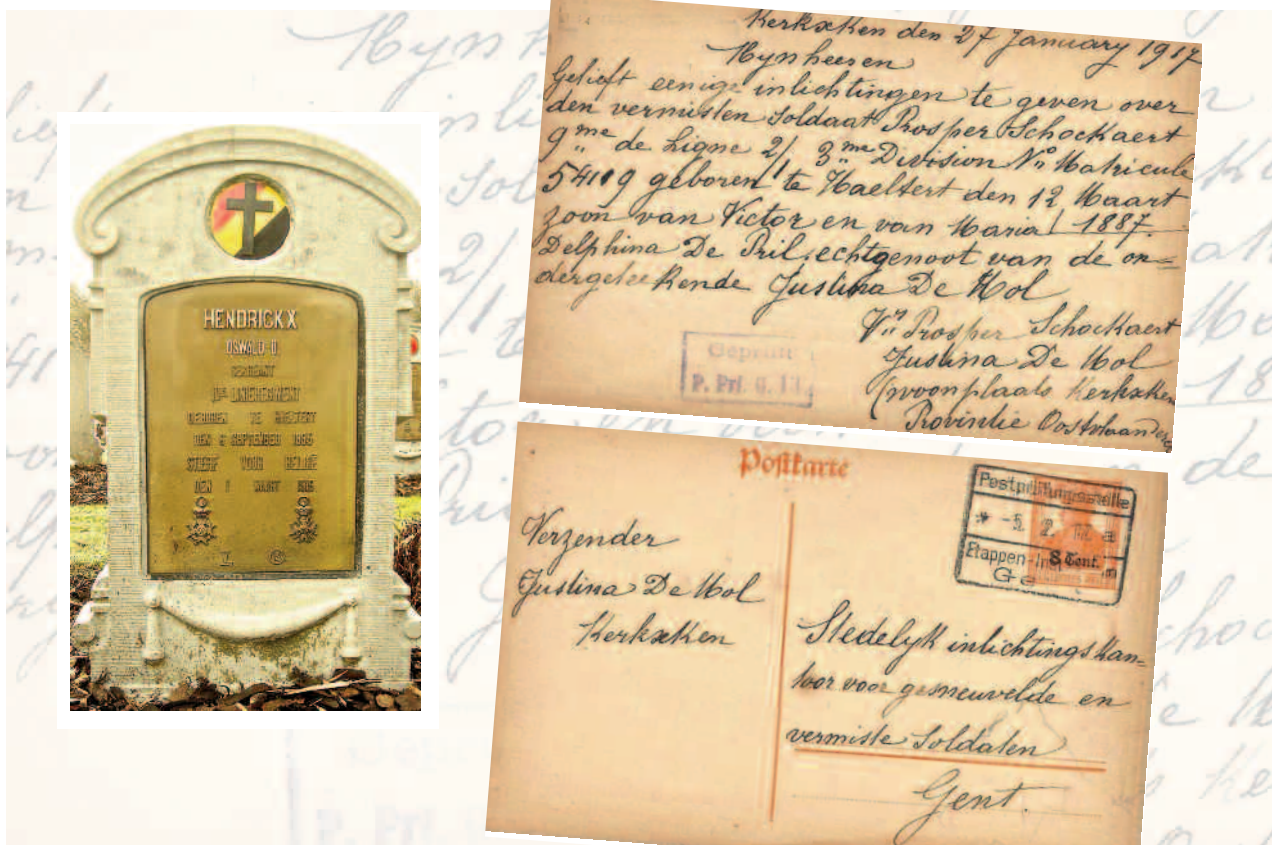 HENDRICKX
OSWALD D.
SERGEANT
LINIEREGIMENT
GEBOREN TE HAELTERT
DEN 6 SEPTEMBER
STIERF VOOR BELGIË
DEN MAART
Kerkxken den 27 January 1917
Mynheeren
Gelieft eenige inlichtingen te geven over
den vermisten soldaat Prosper Schockaert
9me de Ligne 2/1 3me Division No Matricule
54119 geboren te Haeltert den 12 Maart
zoon van Victor en van Maria / 1887.
Delphina De Pril echtgenoot van de on=
dergeteekende Justina De Mol
Vr Prosper Schockaert
Justina De Mol
(woonplaats Kerkxken
Provintie Oostvlaanderen
Geprüft
P. Prf. G. 11.
Postkarte
Postprüfungsstelle
* -5. 2. 17.
Etappen-In 8 Cent.
Ge
Verzender
Justina De Mol
Kerkxken
Stedelyk inlichtings kan=
toor voor gesneuvelde en
vermiste soldaten
Gent.